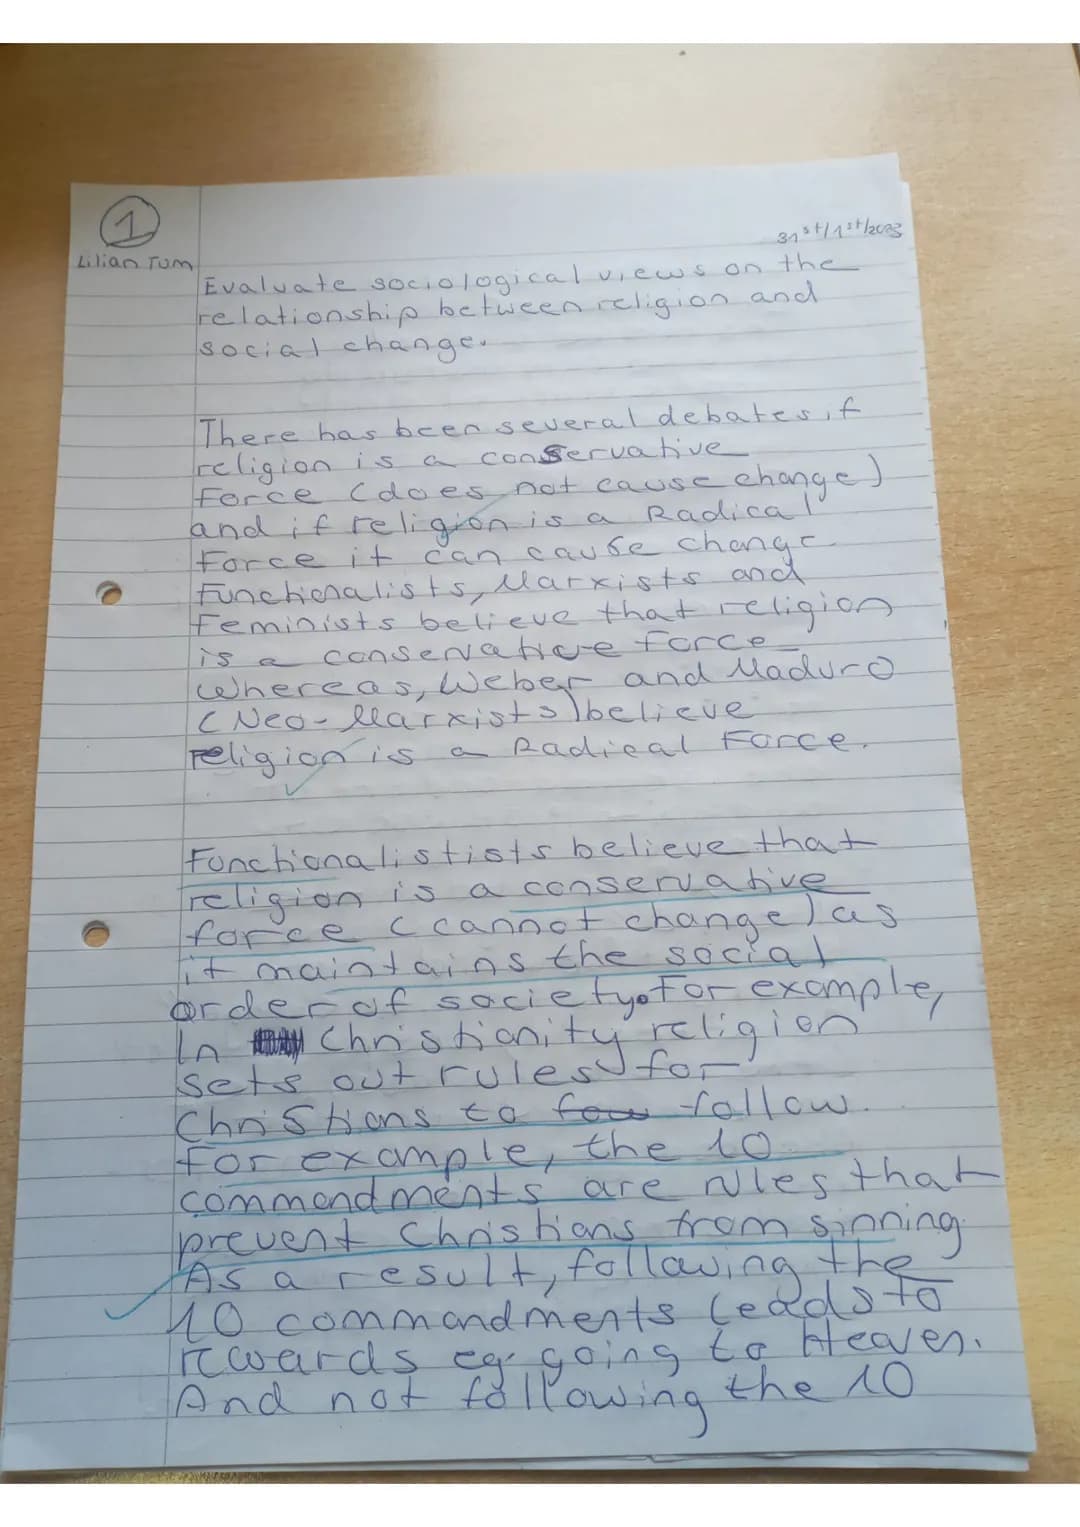 1
Lilian Tum
31st/1st/2023
Evaluate sociological views on the
relationship between religion and
social change.
There has been several debates if
religion is a conservative
Force (does not cause change)
and if religion is a Radical
Force it can cause change
Functionalists, Marxists and
Feminists believe that religion
is a conservative force
Whereas, Weber and Maduro
(Neo-Marxists) believe
religion is a Radical Force.
Functionalistists believe that
religion is a conservative
force (cannot change) as
it maintains the social
order of society. For example,
In Christianity religion
sets out rules for
Christians to follow.
For example, the 10
commandments are rules that
prevent Christians from sinning.
As a result, following the
10 commandments leads to
rewards eg. going to Heaven.
And not following the 10